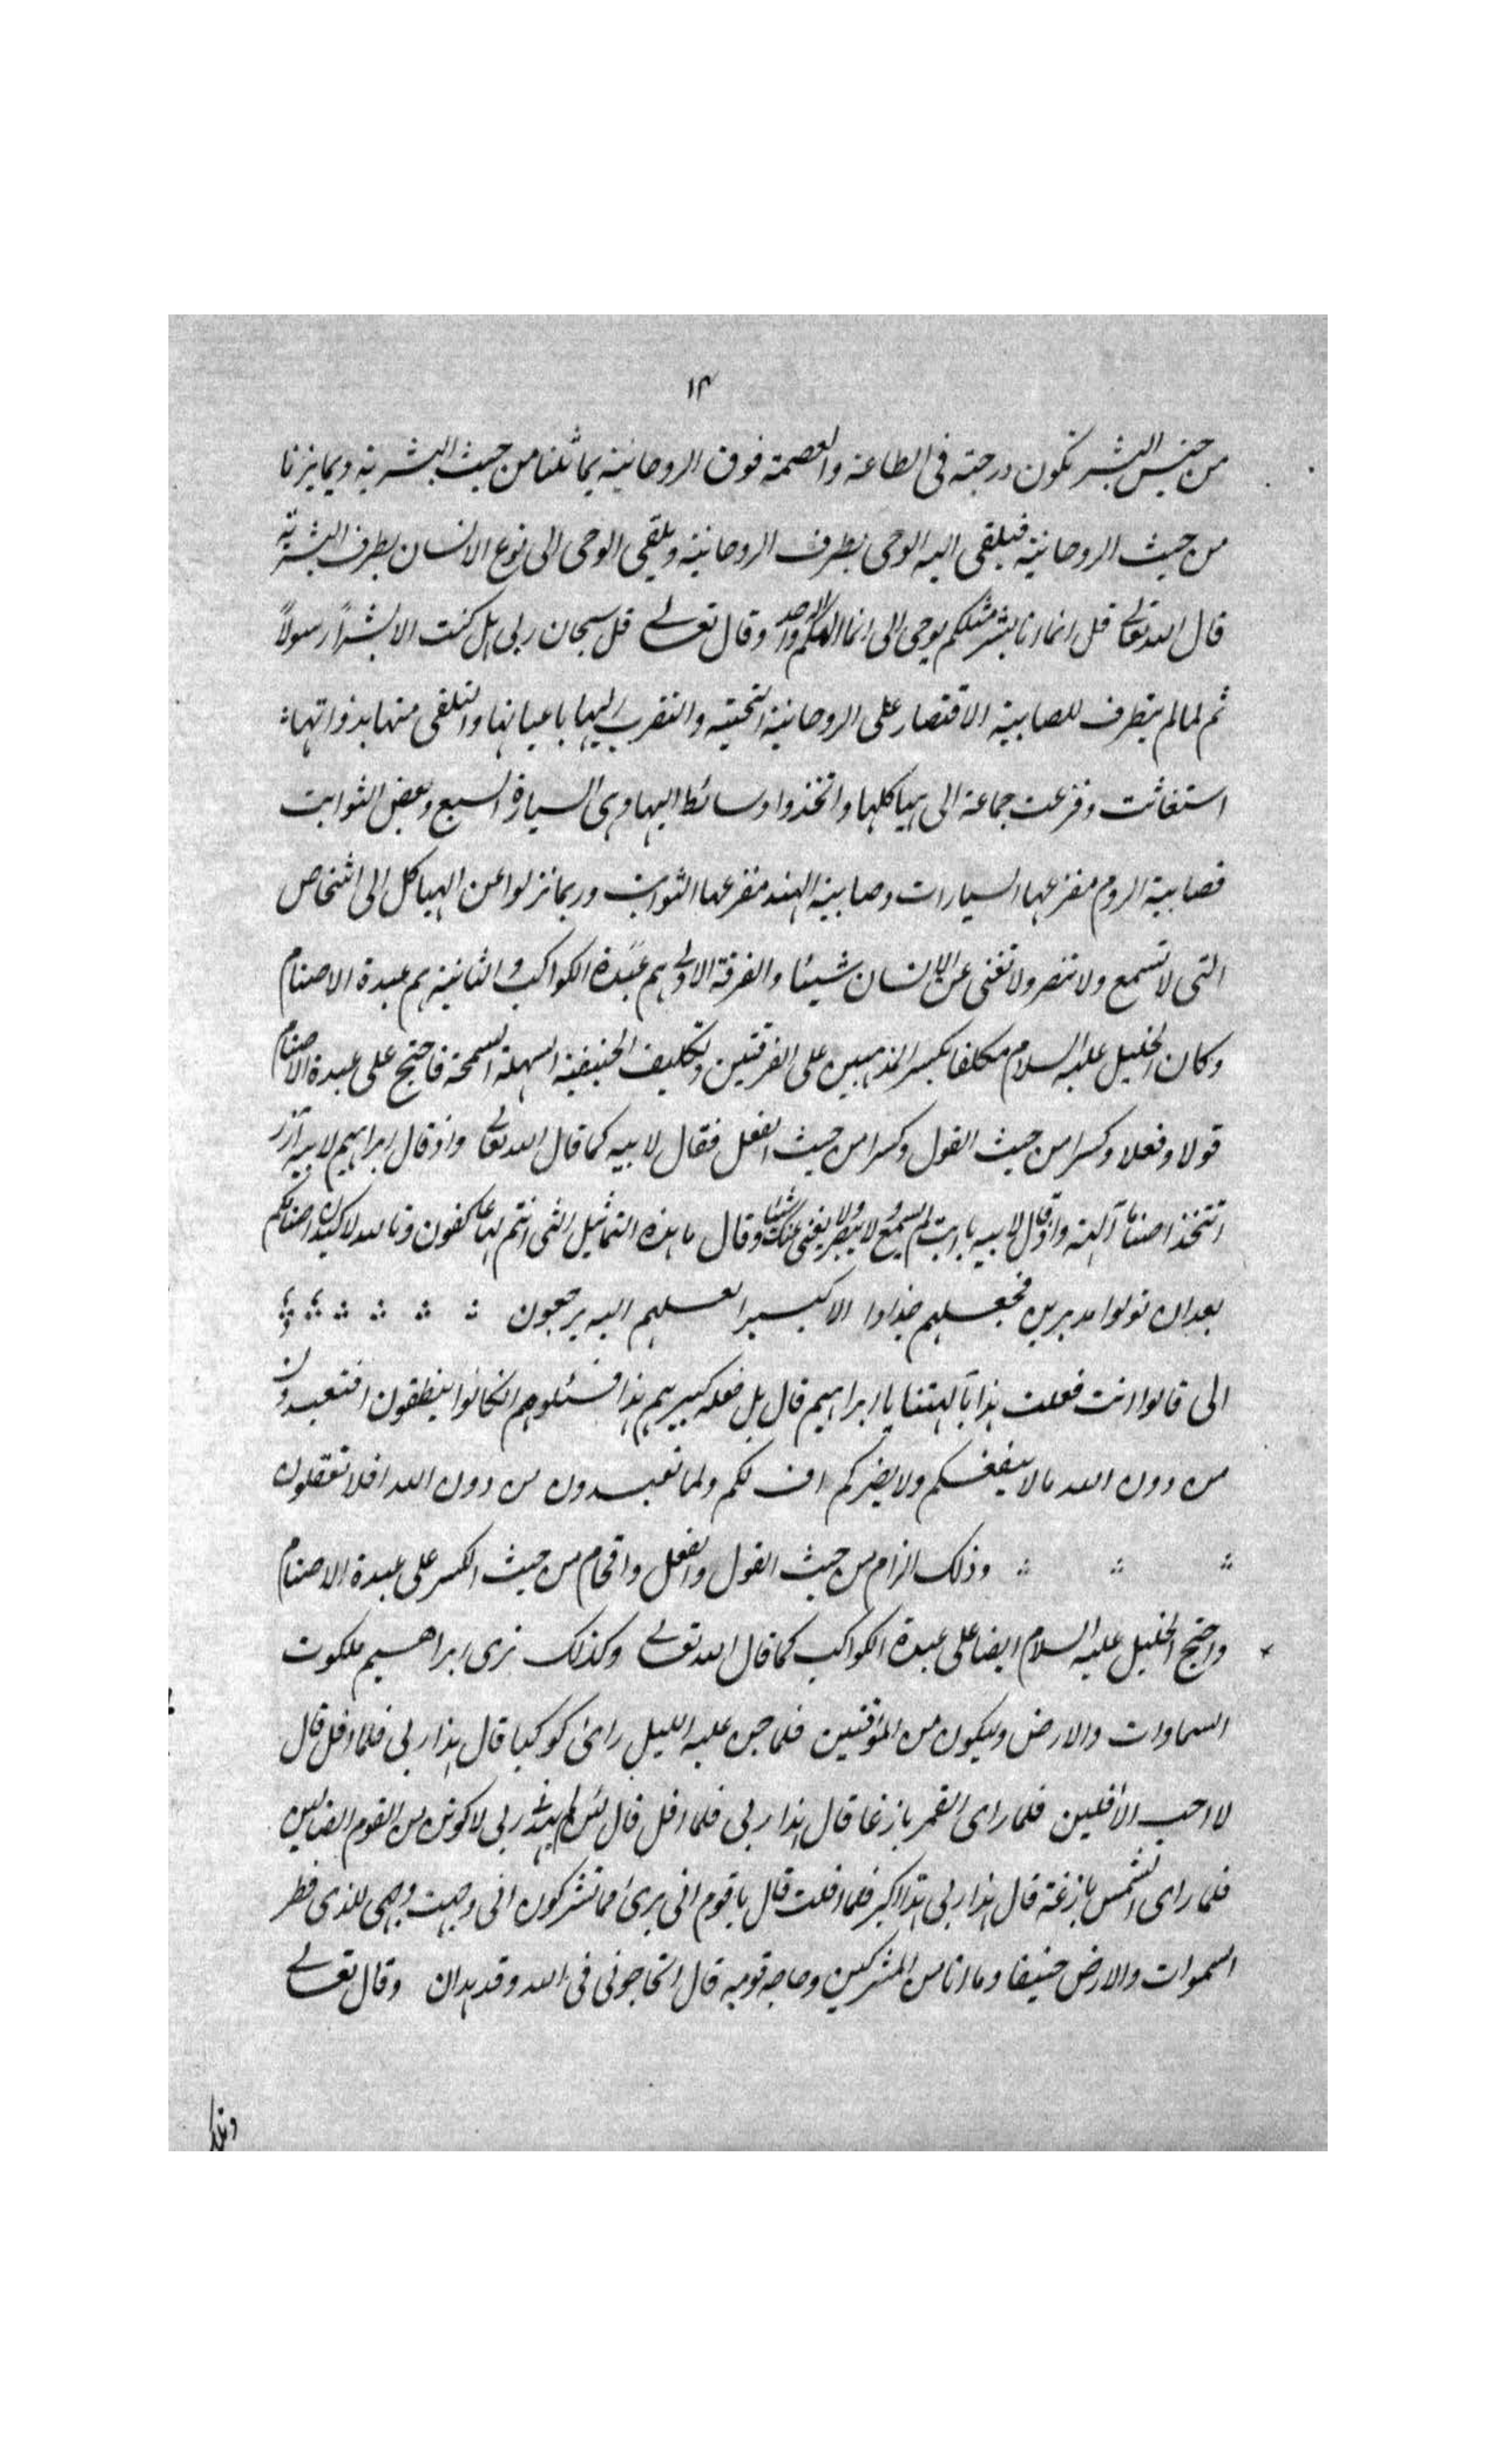 ١٣
من جنس البشر تكون درجته فى الطاعة والعصمة فوق الروحانية يماثلنا من حيث البشرية ويمايزنا
من حيث الروحانية فيلقى اليه الوحى بطرف الروحانية ويلقى الوحى الى نوع الانسان بطرف البشرية
قال الله تعالى قل انما انا بشر مثلكم يوحى الى انما الهكم اله واحد وقال تعالى قل سبحان ربى هل كنت الا بشرًا رسولاً
ثم لما لم يتطرف للصابية الاقتصار على الروحانية التحتيه والتقرب اليها باعيانها والتلقى منها بذواتها
استغاثت وفزعت جماعة الى هياكلها واتخذوا وسائط اليها وهى السيارة السبع وبعض الثوابت
فصابية الروم مفزعها السيارات وصابية الهند مفزعها الثوابت وربما نزلوا عن الهياكل الى اشخاص
التى لا تسمع ولا تبصر ولا تغنى عن الانسان شيئا والفرقة الاولى هم عبدة الكواكب والثانية هم عبدة الاصنام
وكان الخليل عليه السلام مكلفا بكسر المذهبين على الفرقتين وتكليف الحنيفية السهلة السمحة فاحتج على عبدة الاصنام
قولا وفعلا وكسرا من حيث القول وكسرا من حيث الفعل فقال لابيه كما قال الله تعالى واذ قال ابراهيم لابيه آزر
اتتخذ اصناما آلهة واذ قال لابيه يا ابت لم تعبد ما لا يسمع ولا يبصر ولا يغنى عنك شيئا وقال ما هذه التماثيل التى انتم لها عاكفون وتالله لاكيدن اصنامكم
بعد ان تولوا مدبرين فجعلهم جذاذا الا كبيرا لعلهم اليه يرجعون
الى قالوا انت فعلت هذا بآلهتنا يا ابراهيم قال بل فعله كبيرهم هذا فسئلوهم ان كانوا ينطقون افتعبدون
من دون الله ما لا ينفعكم ولا يضركم اف لكم ولما تعبدون من دون الله افلا تعقلون
وذلك الزام من حيث القول والفعل وافحام من حيث الكسر على عبدة الاصنام
واحتج الخليل عليه السلام ايضا على عبدة الكواكب كما قال الله تعالى وكذلك نرى ابراهيم ملكوت
السماوات والارض وليكون من الموقنين فلما جن عليه الليل راى كوكبا قال هذا ربى فلما افل قال
لا احب الآفلين فلما راى القمر بازغا قال هذا ربى فلما افل قال لئن لم يهدنى ربى لاكونن من القوم الضالين
فلما راى الشمس بازغة قال هذا ربى هذا اكبر فلما افلت قال يا قوم انى برئ مما تشركون انى وجهت وجهى للذى فطر
السموات والارض حنيفا وما انا من المشركين وحاجه قومه قال اتحاجونى فى الله وقد هدان وقال تعالى
وتلك